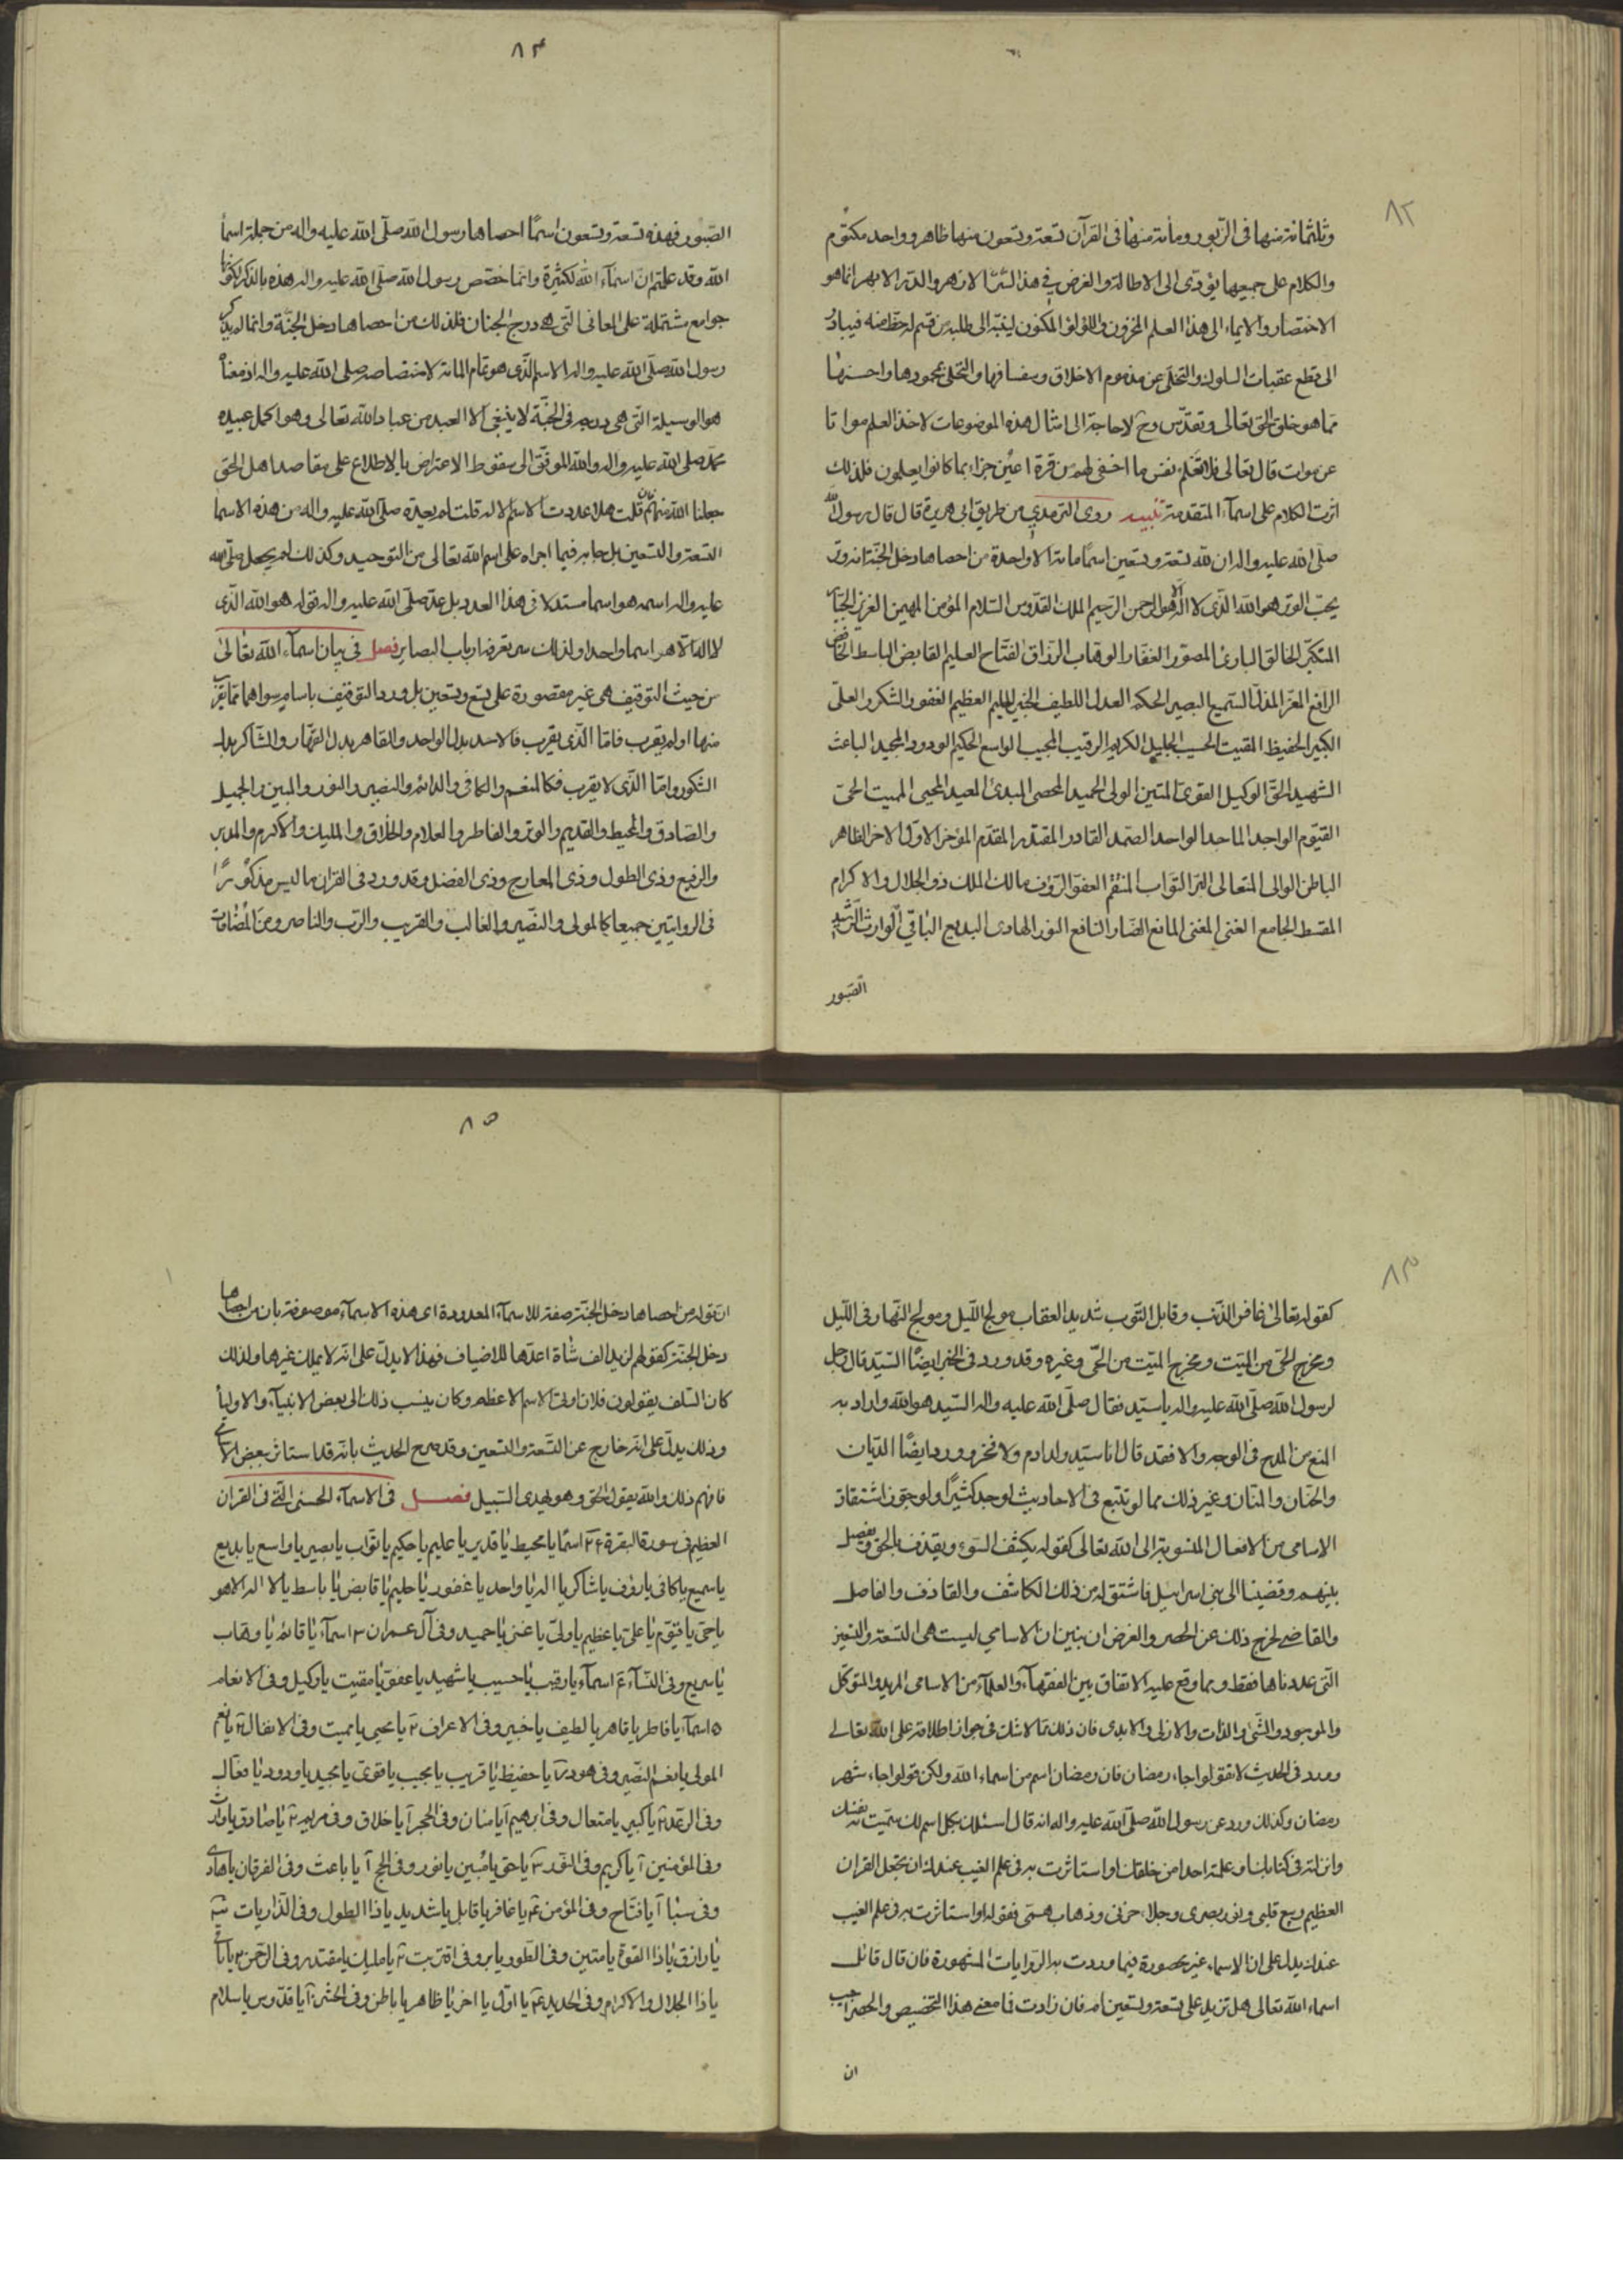 ٨٢
وثلثمائة منها فى الزبور ومائة منها فى القرآن تسعة وتسعون منها ظاهر وواحد مكتوم
والكلام على جميعها يؤدى الى الاطالة والغرض فى هذا الازهر والدر الابهر انما هو
الاختصار والايماء الى هذا العلم المخزون واللؤلؤ المكنون لينتبه الى طلبه من قسم له حظ منه فيبادر
الى قطع عقبات السلوك والتخلى عن مذموم الاخلاق وسفسافها والتحلى بمحمودها واحسنها
مما هو خلق الحق تعالى وتقدس وح لا حاجة الى امثال هذه الموضوعات لاخذ العلم مواتا
عن موات قال تعالى فلا تعلم نفس ما اخفى لهم من قرة اعين جزاء بما كانوا يعملون فلذلك
اثرت الكلام على اسماء المتقدمة تنبيه روى الترمذي من طريق ابى هريرة قال قال رسول الله
صلى الله عليه واله ان لله تسعة وتسعين اسما مائة الا واحدة من احصاها دخل الجنة انه وتر
يحب الوتر هو الله الذى لا اله الا هو الرحمن الرحيم الملك القدوس السلام المؤمن المهيمن العزيز الجبار
المتكبر الخالق البارئ المصور الغفار الوهاب الرزاق الفتاح العليم القابض الباسط الخافض
الرافع المعز المذل السميع البصير الحكم العدل اللطيف الخبير الحليم العظيم الغفور الشكور العلى
الكبير الحفيظ المقيت الحسيب الجليل الكريم الرقيب المجيب الواسع الحكيم الودود المجيد الباعث
الشهيد الحق الوكيل القوى المتين الولى الحميد المحصى المبدئ المعيد المحيى المميت الحى
القيوم الواجد الماجد الواحد الصمد القادر المقتدر المقدم المؤخر الاول الاخر الظاهر
الباطن الوالى المتعالى البر التواب المنتقم العفو الرؤف مالك الملك ذو الجلال والاكرام
المقسط الجامع الغنى المغنى المانع الضار النافع النور الهادى البديع الباقى الوارث الرشيد
الصبور
٨٤
الصبور فهذه تسعة وتسعون اسما احصاها رسول الله صلى الله عليه واله من جملة اسما
الله وقد علمتم ان اسماء الله لكثيرة وانما خصص رسول الله صلى الله عليه واله هذه بالذكر لكونها
جوامع مشتملة على المعانى التى هى درج الجنان فلذلك من احصاها دخل الجنة وانما لم يذكر
رسول الله صلى الله عليه واله الاسم الذى هو تمام المائة لاختصاصه صلى الله عليه واله اذ معناه
هو الوسيلة التى هى درجة فى الجنة لا ينبغى الا العبد من عباد الله تعالى وهو اكمل عبيده
محمد صلى الله عليه واله والله الموفق الى سقوط الاعتراض بالاطلاع على مقاصد اهل الحق
جعلنا الله منهم فان قلت هلا عددت الاسم الاله قلت لم يعده صلى الله عليه واله من هذه الاسما
التسعة والتسعين بل جاء به فيما اجراه على اسم الله تعالى من التوحيد وكذلك لم يجعل صلى الله
عليه واله اسمه هو اسما مستقلا فى هذا العدد بل عد صلى الله عليه واله قوله هو الله الذى
لا اله الا هو اسما واحدا ولذلك سر يعرفه ارباب البصاير فصل فى بيان اسماء الله تعالى
من حيث التوقيف هى غير مقصورة على تسع وتسعين بل ورد التوقيف باسام سواها مما يقرب
منها او لم يقرب فاما الذى يقرب فالاحد بدل الواحد والقاهر بدل القهار والشاكر بدل
الشكور واما الذى لا يقرب فكالمنعم والكافى والدائم والنصير والنور والمبين والجميل
والصادق والمحيط والقديم والوتر والفاطر والعلام والخلاق والمليك والاكرم والمدبر
والرفيع وذى الطول وذى المعارج وذى الفضل وقد ورد فى القران ما ليس مذكورا
فى الروايتين جميعا كالمولى والنصير والغالب والقريب والرب والناصر ومن المضافات
٨٣
كقوله تعالى غافر الذنب وقابل التوب شديد العقاب مولج الليل ومولج النهار فى الليل
ومخرج الحى من الميت ومخرج الميت من الحى وغيره وقد ورد فى الخبر ايضا السيد قال رجل
لرسول الله صلى الله عليه واله يا سيد فقال صلى الله عليه واله السيد هو الله واراد به
المنع من المدح فى الوجه والا فقد قال انا سيد ولد ادم ولا فخر وورد ايضا الديان
والحنان والمنان وغير ذلك مما لو تتبع فى الاحاديث لوجد كثيرا ولو جوز اشتقاق
الاسامى من الافعال المنسوبة الى الله تعالى كقوله يكشف السوء ويقذف بالحق ويفصل
بينهم وقضينا الى بنى اسرائيل فاشتق له من ذلك الكاشف والقاذف والفاصل
والقاضى لخرج ذلك عن الحصر والغرض ان نبين ان الاسامي ليست هى التسعة والتسعين
التى عددناها فقط ومما وقع عليه الاتفاق بين الفقهاء والعلماء من الاسامى المريد والمتوكل
والموجود والشئ والذات والازلى والابدى فان ذلك مما لا شك فى جواز اطلاقه على الله تعالى
وورد فى الحديث لا تقولوا جاء رمضان فان رمضان اسم من اسماء الله ولكن قولوا جاء شهر
رمضان وكذلك ورد عن رسول الله صلى الله عليه واله انه قال اسئلك بكل اسم لك سميت به نفسك
وانزلته فى كتابك او علمته احدا من خلقك او استاثرت به فى علم الغيب عندك ان تجعل القران
العظيم ربيع قلبى ونور بصرى وجلاء حزنى وذهاب همى فقوله او استاثرت به فى علم الغيب
عندك يدل على ان الاسماء غير محصورة فيما وردت به الروايات المشهورة فان قال قائل
اسماء الله تعالى هل تزيد على تسعة وتسعين ام لا فان زادت فما معنى هذا التخصيص والحصر اجيب
ان
٨٥
ان قوله من احصاها دخل الجنة صفة للاسماء المعدودة اى هذه الاسماء موصوفة بان من احصاها
دخل الجنة كقولهم لزيد الف شاة اعدها للاضياف فهذا لا يدل على انه لا يملك غيرها ولذلك
كان السلف يقولون فلان اوتى الاسم الاعظم وكان ينسب ذلك الى بعض الانبياء والاولياء
وذلك يدل على انه خارج عن التسعة والتسعين وقد صرح الحديث بانه قد استاثر بعض الاسامى
فافهم ذلك والله يقول الحق وهو يهدى السبيل فصل فى الاسماء الحسنى التى فى القران
العظيم فى سورة البقرة ٢٤ اسما يا محيط يا قدير يا عليم يا حكيم يا تواب يا بصير يا واسع يا بديع
يا سميع يا كافى يا رؤف يا شاكر يا اله يا واحد يا غفور يا حليم يا قابض يا باسط يا لا اله الا هو
يا حى يا قيوم يا على يا عظيم يا ولى يا غنى يا حميد وفى آل عمران ٣ اسماء يا قائم يا وهاب
يا سريع وفى النساء اسماء يا رقيب يا حسيب يا شهيد يا عفو يا مقيت يا وكيل وفى الانعام
٥ اسماء يا فاطر يا قاهر يا لطيف يا خبير وفى الاعراف ٢ يا محيى يا مميت وفى الانفال ٢ يا نعم
المولى يا نعم النصير وفى هود يا حفيظ يا قريب يا مجيب يا قوى يا مجيد يا ودود يا فعال
وفى الرعد ٢ يا كبير يا متعال وفى ابرهيم ١ يا منان وفى الحجر ١ يا خلاق وفى مريم ٢ يا صادق يا وارث
وفى المؤمنين ١ يا كريم وفى النور ٣ يا حق يا مبين يا نور وفى الحج ١ يا باعث وفى الفرقان يا هادى
وفى سبا ١ يا فتاح وفى المؤمن ٤ يا غافر يا قابل يا شديد يا ذا الطول وفى الذاريات ٣
يا رازق يا ذا القوة يا متين وفى الطور يا بر وفى اقتربت ٢ يا مليك يا مقتدر وفى الرحمن ٢ يا باقى
يا ذا الجلال والاكرام وفى الحديد ٤ يا اول يا اخر يا ظاهر يا باطن وفى الحشر يا قدوس يا سلام